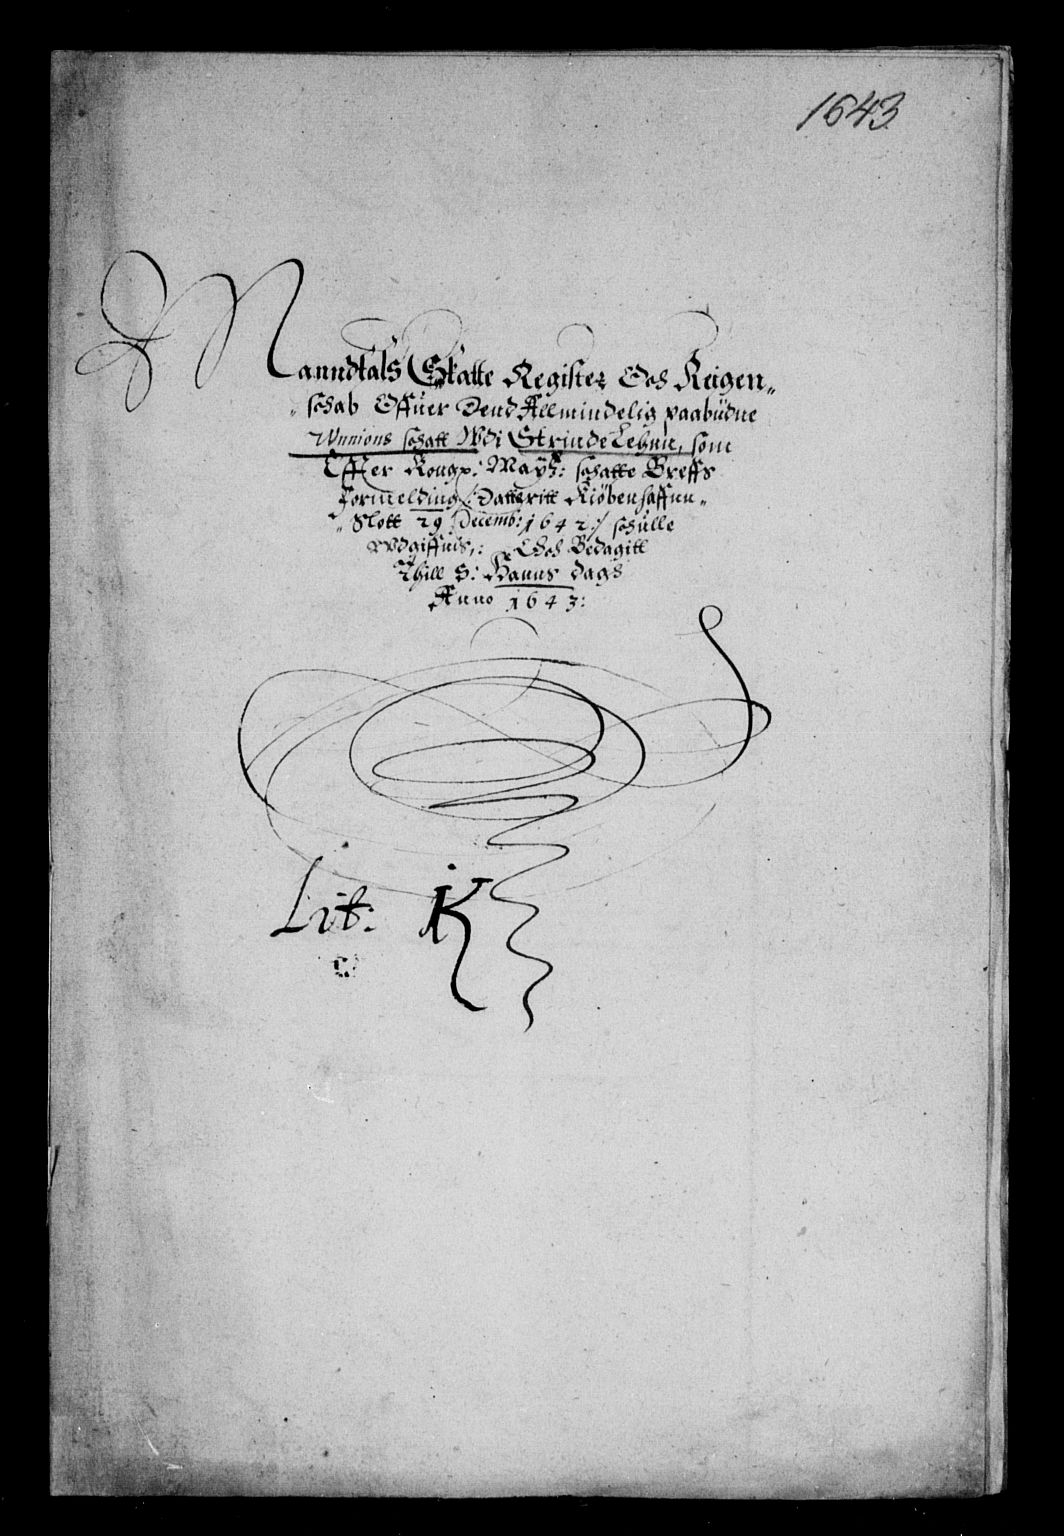 1643
Manndtals Skatte Register Och Reigen„
„schab Offuer Dend Allmindelig paabudne
Wnnions schatt Wdi Strinde Lehnn, som
Effter Kongx: Maytz: schatte Breffs
formelding /: Datteritt Kiöbenhaffnn„
„Slott 29 Decemb: 1642 :/ schulle
wdgiffuis,: Och Bedagitt
Thill S: Hanns dags
Anno 1643:
Lit: K